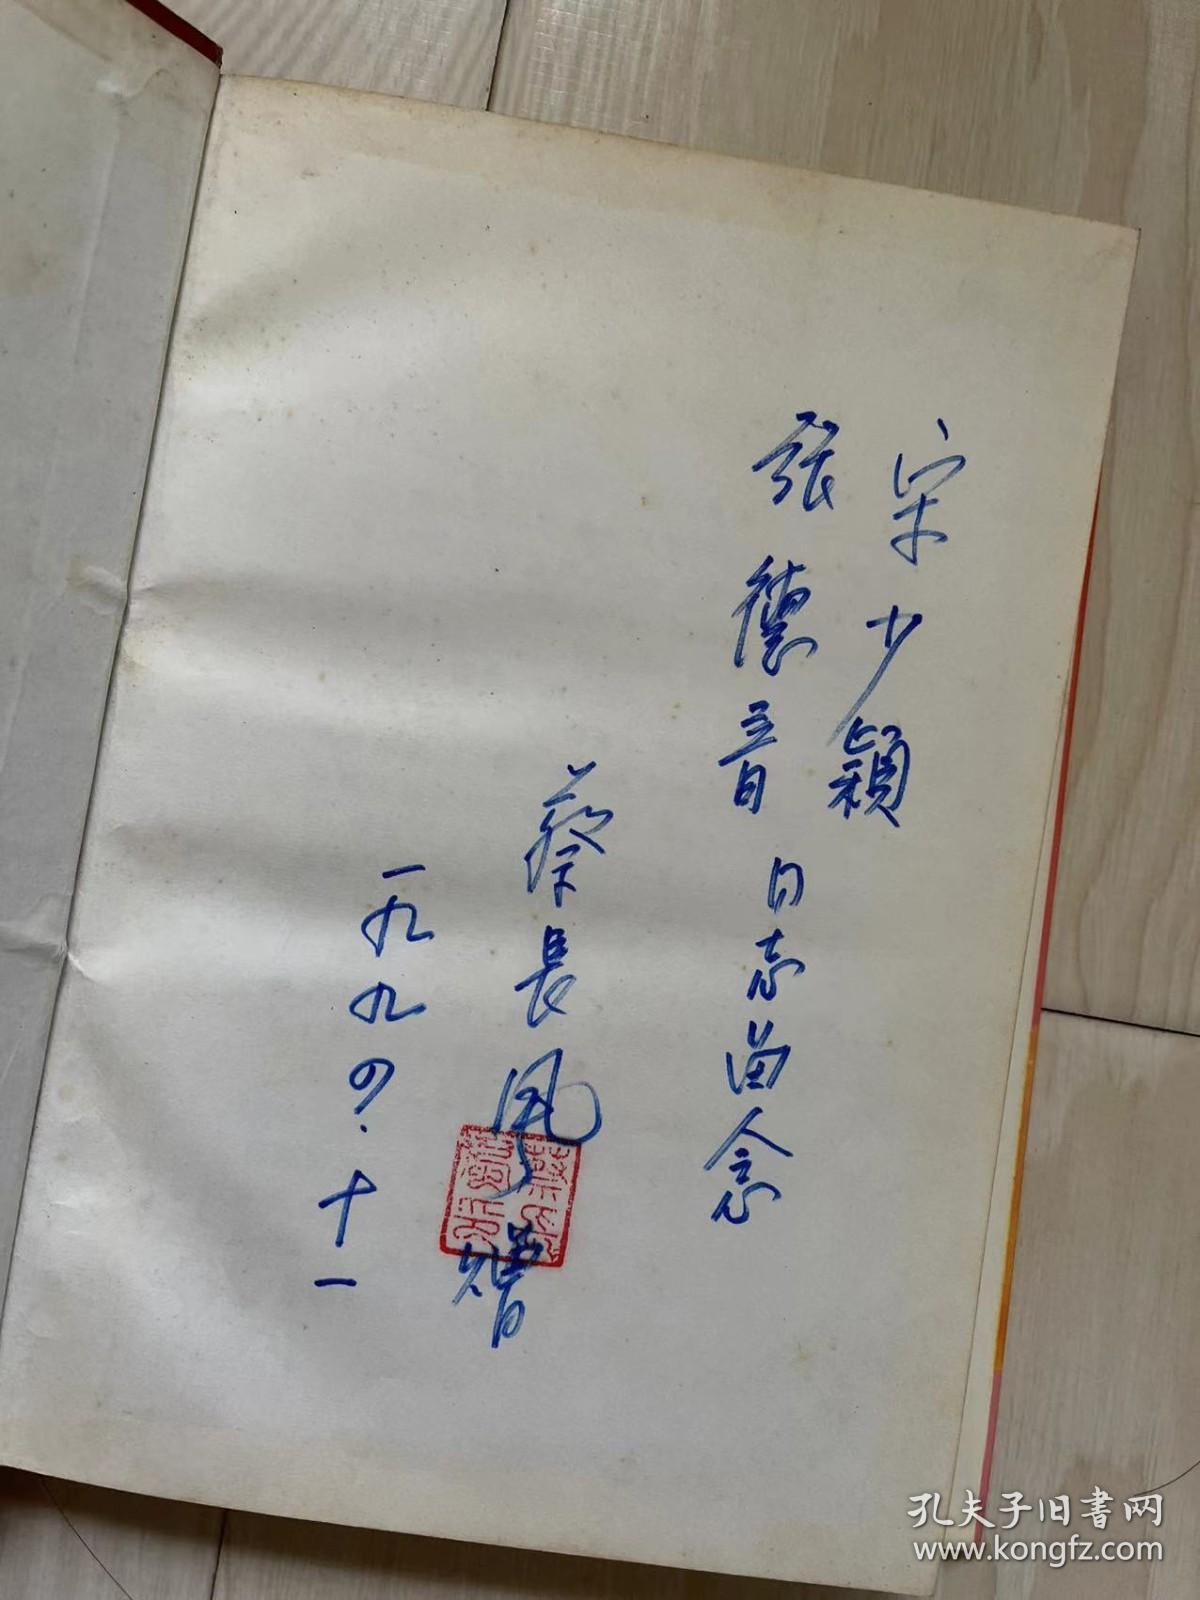 宋少颖
張德音 同志留念
蔡長風 赠
一九九四.十一
孔夫子旧書网
www.kongfz.com